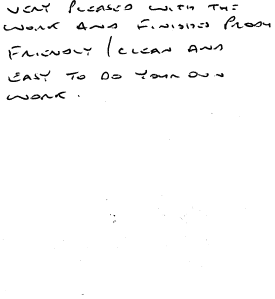 VERY PLEASED WITH THE
WORK AND FINISHED PRODU
FRIENDLY / CLEAN AND
EASY TO DO YOUR OWN
WORK.